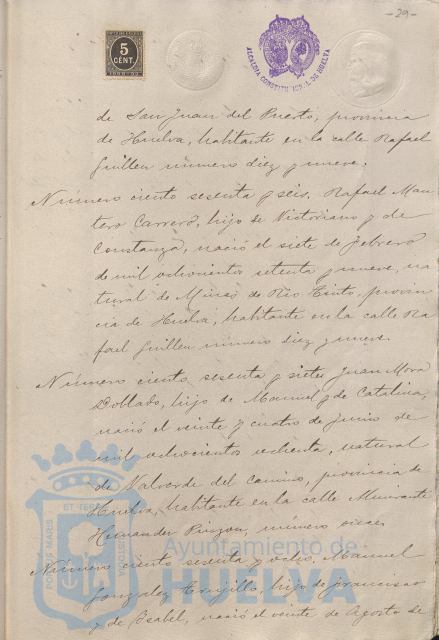 -29-
5
CENT.
ALCALDIA CONSTITUCIONAL DE HUELVA
de San Juan del Puerto, provincia
de Huelva, habitante en la calle Rafael
Guillen número diez y nueve.
Número ciento sesenta y seis. Rafael Man
tero Carrero, hijo de Victoriano y de
Constanza, nació el siete de febrero
de mil ochocientos setenta y nueve, na
tural de Minas de Rio Tinto, provin
cia de Huelva, habitante en la calle Ra
fael Guillen número diez y nueve.
Número ciento sesenta y siete, Juan Mora
Doblado, hijo de Manuel y de Catalina,
nació el veinte y cuatro de junio de
mil ochocientos ochenta, natural
de Valverde del Camino, provincia de
Huelva, habitante en la calle Almirante
Hernandez Pinzon, número
Número ciento sesenta y ocho, Manuel
Gonzalez Trujillo, hijo de Francisco
y de Isabel, nació el veinte de Agosto de
PORTUS MARIS
ET TERRAE
CUSTODIA
Ayuntamiento de
HUELVA